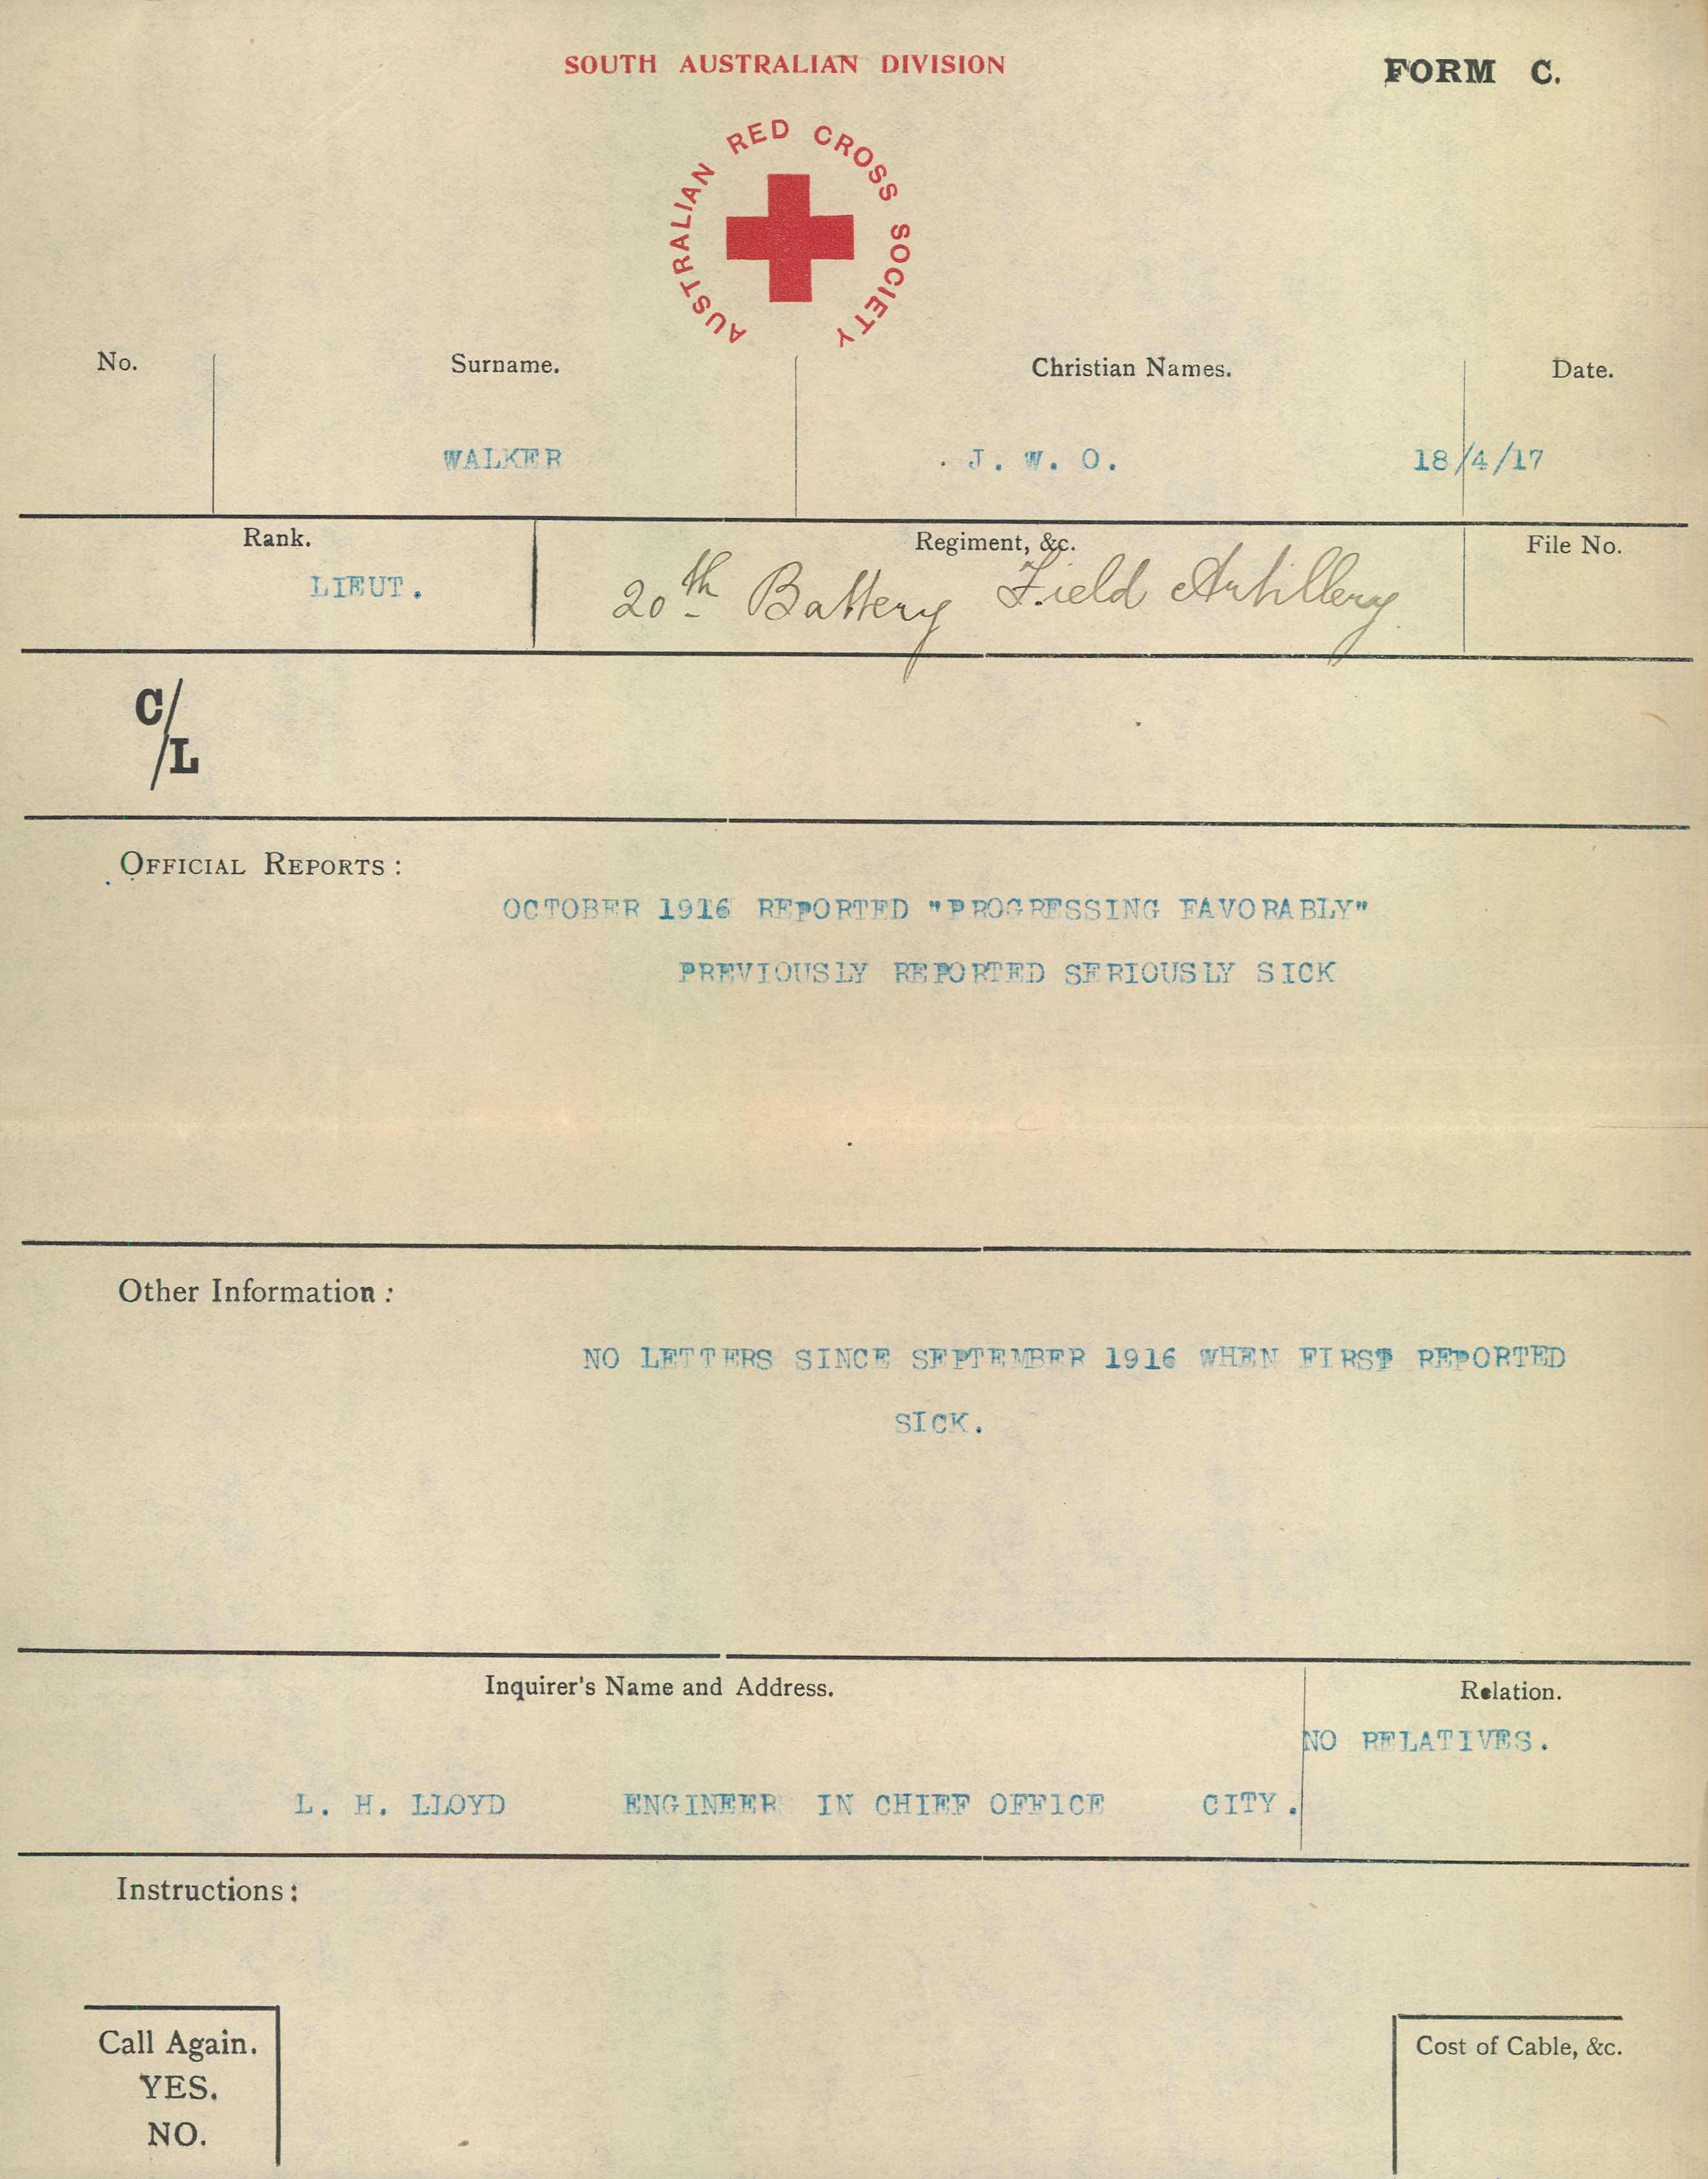 SOUTH AUSTRALIAN DIVISION
FORM C.
AUSTRALIAN RED CROSS SOCIETY
No. Surname. Christian Names. Date.
WALKER . J. W. O. 18/4/17
Rank. Regiment, &c. File No.
LIEUT. 20th Battery Field Artillery
C/L
OFFICIAL REPORTS :
OCTOBER 1916 REPORTED "PROGRESSING FAVORABLY"
PREVIOUSLY REPORTED SERIOUSLY SICK
Other Information :
NO LETTERS SINCE SEPTEMBER 1916 WHEN FIRST REPORTED
SICK.
Inquirer's Name and Address. Relation.
NO RELATIVES.
L. H. LLOYD ENGINEER IN CHIEF OFFICE CITY.
Instructions :
Call Again. Cost of Cable, &c.
YES.
NO.